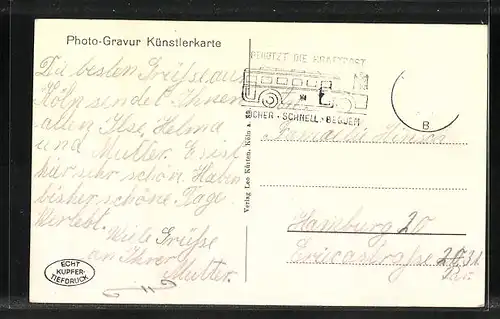 Photo-Gravur Künstlerkarte
Die besten Grüße aus
Köln sendet Ihnen
allen Ilse, Helma
und Mutter. Es ist
hier sehr schön. Haben
bisher schöne Tage
verlebt.
Viele Grüße
an Ihre
Mutter.
ECHT
KUPFER-
TIEFDRUCK
Verlag Leo Kürten, Köln a. Rh.
BENUTZT DIE KRAFTPOST
SICHER - SCHNELL - BEQUEM
B
Familie
Hamburg 20
Ericastraße